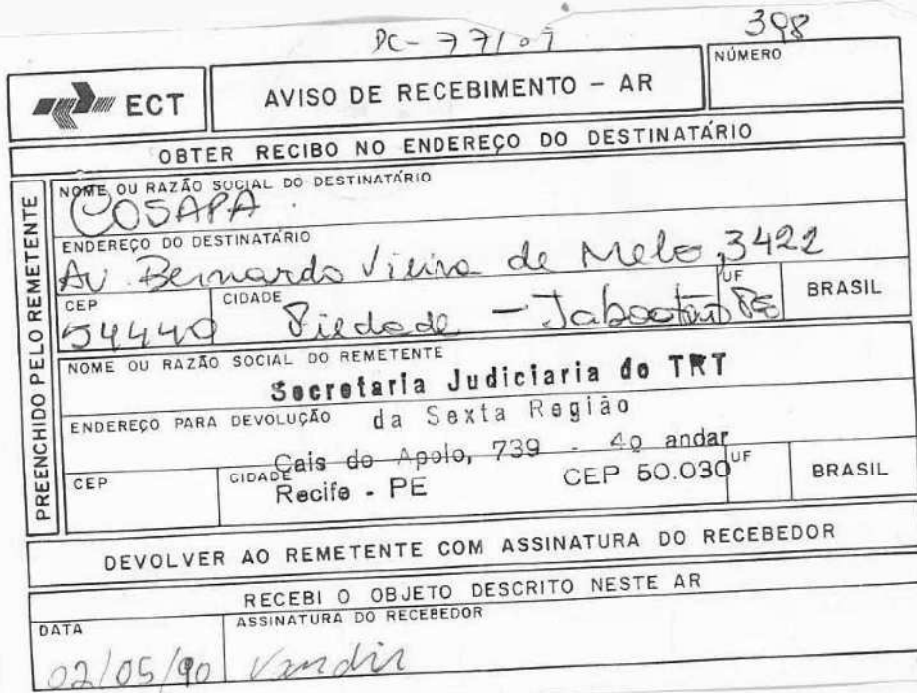 DC-77/07 398
ECT
AVISO DE RECEBIMENTO - AR
NÚMERO
OBTER RECIBO NO ENDEREÇO DO DESTINATÁRIO
PREENCHIDO PELO REMETENTE
NOME OU RAZÃO SOCIAL DO DESTINATÁRIO
COSAPA
ENDEREÇO DO DESTINATÁRIO
Av Bernardo Vieira de Melo, 3422
CEP CIDADE UF BRASIL
54440 Piedade - Jaboatão PE
NOME OU RAZÃO SOCIAL DO REMETENTE
Secretaria Judiciaria do TRT
ENDEREÇO PARA DEVOLUÇÃO da Sexta Região
Cais do Apolo, 739 - 4o andar
CEP CIDADE UF BRASIL
Recife - PE CEP 50.030
DEVOLVER AO REMETENTE COM ASSINATURA DO RECEBEDOR
RECEBI O OBJETO DESCRITO NESTE AR
DATA ASSINATURA DO RECEBEDOR
02/05/90 Vandir